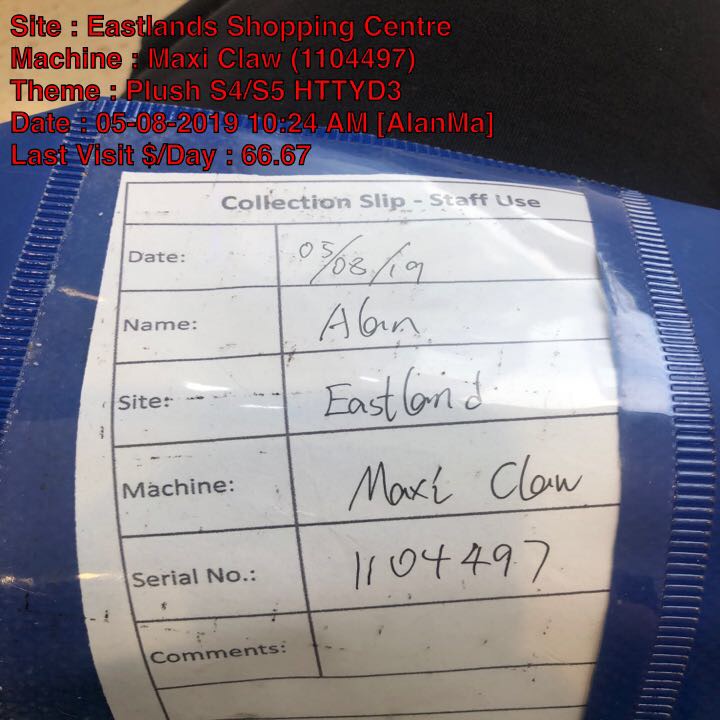 Site : Eastlands Shopping Centre
Machine : Maxi Claw (1104497)
Theme : Plush S4/S5 HTTYD3
Date : 05-08-2019 10:24 AM [AlanMa]
Last Visit $/Day : 66.67
Collection Slip - Staff Use
Date: 05/08/19
Name: Alan
Site: Eastland
Machine: Maxi Claw
Serial No.: 1104497
Comments: